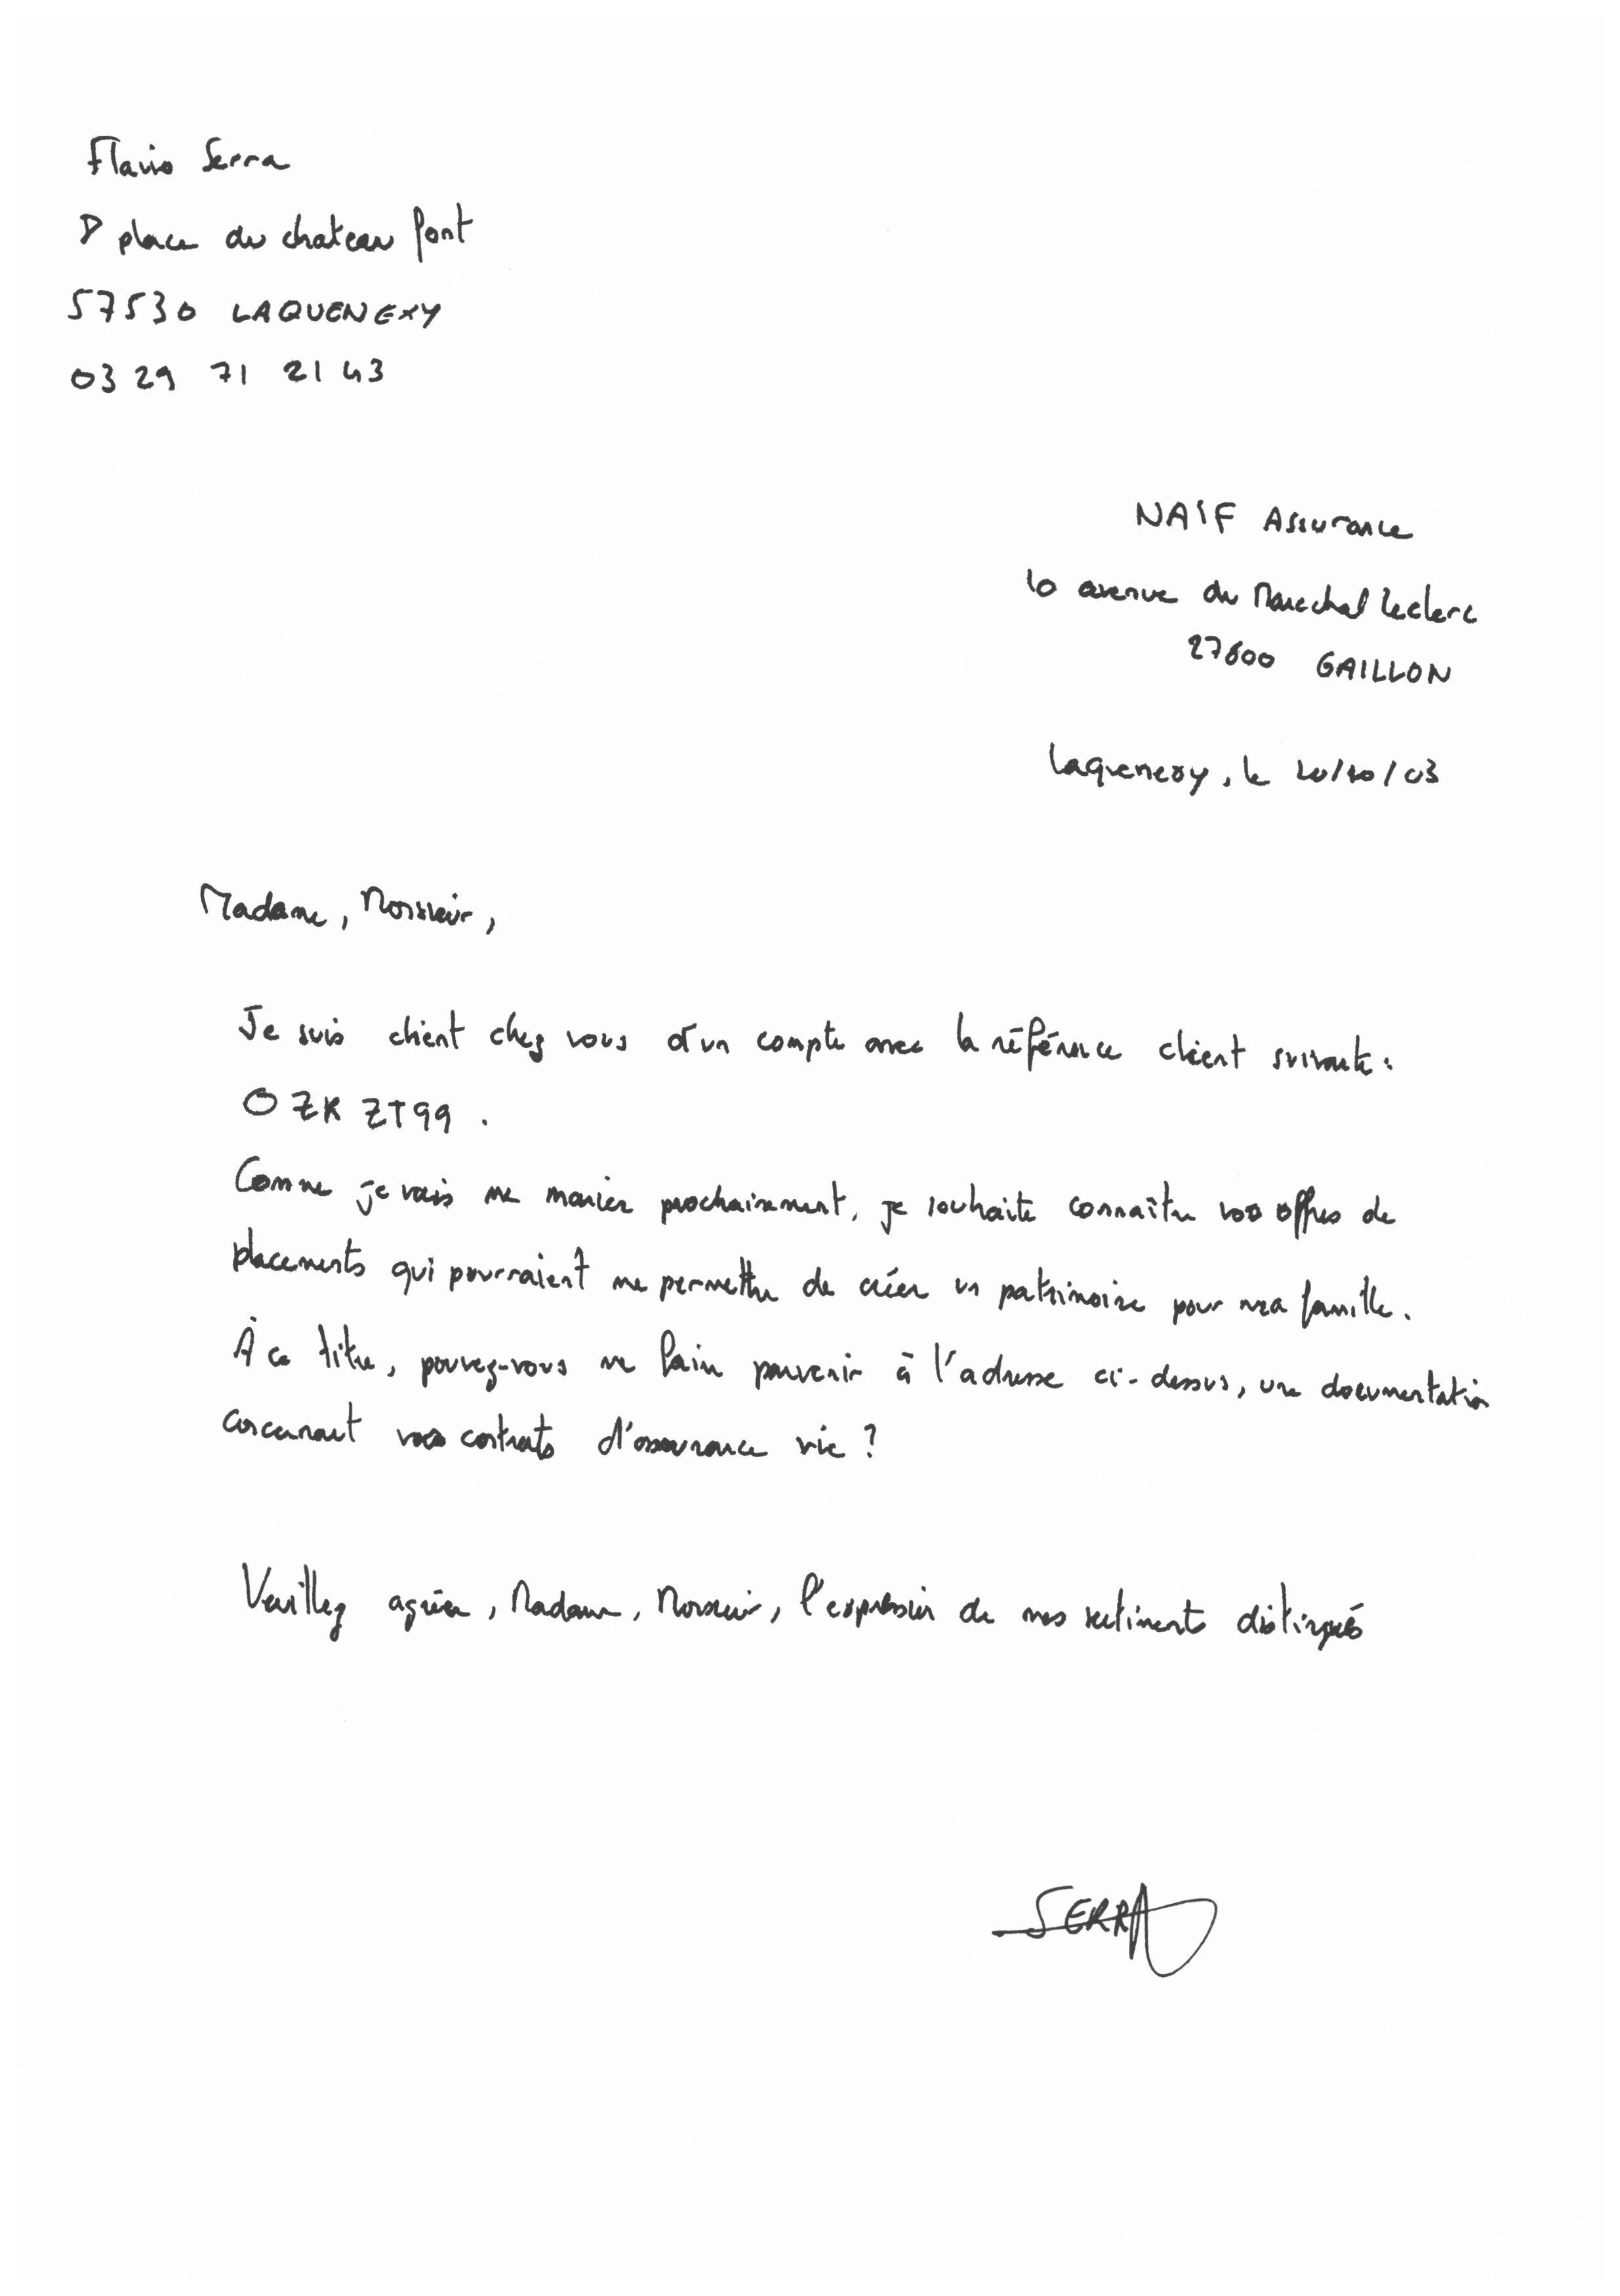 Flavio Serra
place du chateau font
57530 LAQUENEXY
03 29 71 21 43
NAIF Assurance
10 avenue du Marechal Leclerc
27600 GAILLON
Laquenexy, le 20/10/03
Madame, Monsieur,
Je suis client chez vous d'un compte avec la référence client suivante :
OZKZT99.
Comme je vais me marier prochainement, je souhaite connaître vos offres de
placements qui pourraient me permettre de créer un patrimoine pour ma famille.
À ce titre, pouvez-vous me faire parvenir à l'adresse ci-dessus, une documentation
concernant vos contrats d'assurance vie ?
Veuillez agréer, Madame, Monsieur, l'expression de mes sentiments distingués
SERRA